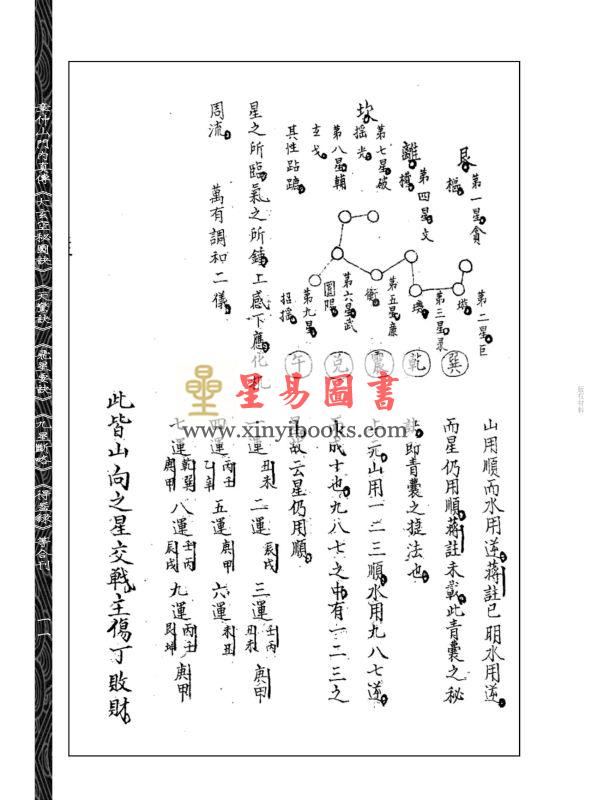 山用順而水用逆蔣註已明水用逆
而星仍用順蔣註未載此青囊之秘
訣即青囊之捷法也
上元山用一二三順水用九八七逆
合成十也九八七之中有一二三之
星故云星仍用順
一運 丑未 二運 辰戌 三運 壬丙 丑未 庚甲
四運 丙壬 乙辛 五運 庚甲 六運 未丑
七運 乾巽 庚甲 八運 壬丙 辰戌 九運 丙壬 艮坤 庚甲
此皆山向之星交戰主傷丁敗財
艮
樞
第一星貪
第二星巨
璇
巽
第三星彔
璣
乾
離
權
第四星文
第五星廉
衡
震
坎
搖光
第七星破
第六星武
闓陽
兌
第八星輔
玄戈
第九星
招搖
午
其性跕蹠
星之所臨氣之所鍾上感下應化机
周流 萬有調和二儀
星易圖書
www.xinyibooks.com
版权材料
章仲山門內真傳《大玄空秘圖訣》《天驚訣》《飛星要訣》《九星斷略》《得益錄》等合刊
一一